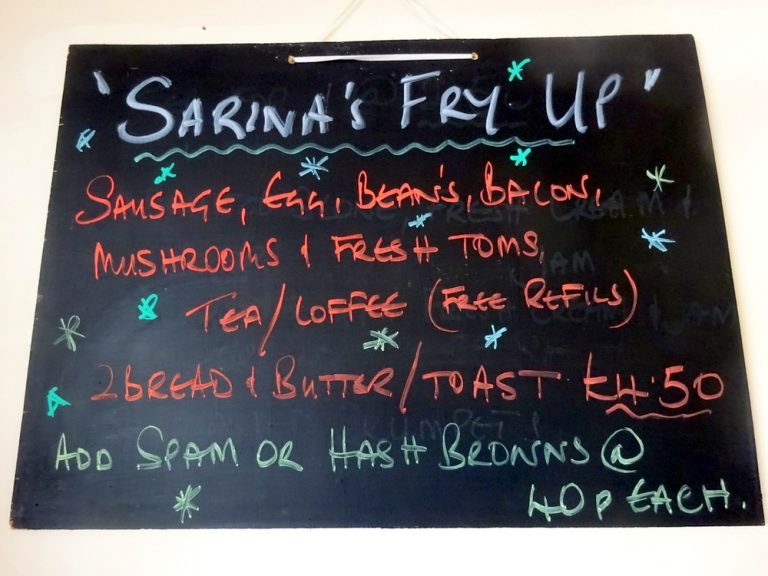 "SARINA'S FRY UP"
SAUSAGE, EGG, BEAN'S, BACON,
MUSHROOMS & FRESH TOMS,
TEA/COFFEE (FREE REFILS)
2 BREAD & BUTTER/TOAST £4.50
ADD SPAM OR HASH BROWNS @
40p EACH.